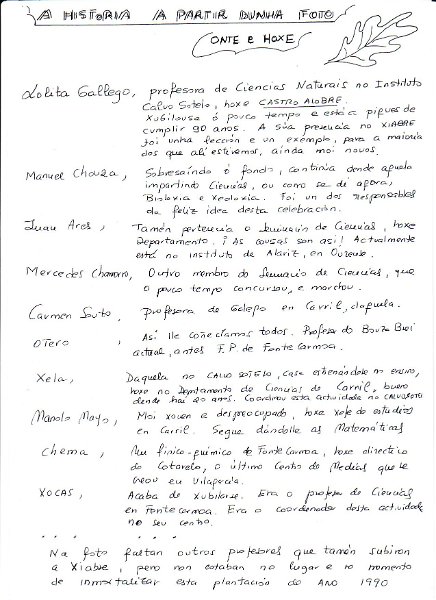 A HISTORIA A PARTIR DUNHA FOTO
ONTE E HOXE
Lolita Gallego, profesora de Ciencias Naturais no Instituto
Calvo Sotelo, hoxe CASTRO ALOBRE.
Xubilouse ó pouco tempo e está a piques de
cumplir 90 anos. A súa presencia no XIABRE
foi unha lección e un exemplo, para a maioría
dos que alí estivemos, aínda moi novos.
Manuel Chouza, Sobresaíndo ó fondo, continúa dende aquela
impartindo Ciencias, ou como se di agora,
Bioloxía e Xeoloxía. Foi un dos responsables
da feliz idea desta celebración.
Juan Ares, Tamén pertencía o Seminario de Ciencias, hoxe
Departamento. ¡As cousas son así! Actualmente
está no Instituto de Alariz, en Ourense.
Mercedes Outro membro do Seminario de Ciencias, que
o pouco tempo concursou, e marchou.
Carmen Souto, Profesora de Galego en Carril, daquela.
OTERO, Así lle coñeciamos todos. Profesor do Bouza Brei
actual, antes F.P. de Fontecarmoa.
Xela, Daquela no CALVO SOTELO, case estreándose no ensino,
hoxe no Departamento de Ciencias de Carril, bueno
dende hai 20 anos. Coordinou esta actividade no CALVO SOTELO
Manolo Mayo, Moi xoven e despreocupado, hoxe xefe de estudios
en Carril. Segue dándolle as Matemáticas
Chema, Un físico-químico de Fontecarmoa, hoxe directivo
do Cotarelo, o último Centro de Medias que se
creou en Vilagarcía.
XOCAS, Acaba de xubilarse. Era o profesor de Ciencias
en Fontecarmoa. Era o coordenador desta actividade
no seu centro.
. . . .
Na foto faltan outros profesores que tamén subiron
a Xiabre, pero non estaban no lugar e no momento
de inmortalizar esta plantación do ANO 1990